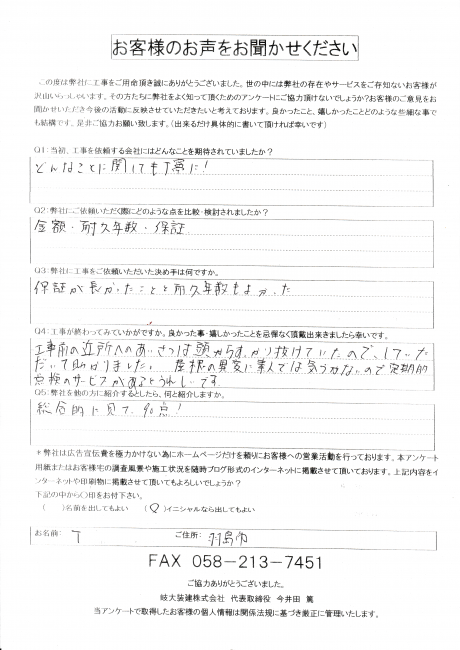 お客様のお声をお聞かせください
この度は弊社に工事をご用命頂き誠にありがとうございました。世の中には弊社の存在やサービスをご存知ないお客様が
沢山いらっしゃいます。その方たちに弊社をよく知って頂くためのアンケートにご協力頂けないでしょうか?お客様のご意見をお
聞かせいただき今後の活動に反映させていただきたいと考えております。良かったこと、嬉しかったことどのような些細な事で
も結構です、是非ご協力お願い致します。(出来るだけ具体的に書いて頂ければ幸いです)
Q1:当初、工事を依頼する会社にはどんなことを期待されていましたか?
どんなことに関しても丁寧に!
Q2:弊社にご依頼いただく際にどのような点を比較・検討されましたか?
金額・耐久年数・保証
Q3:弊社に工事をご依頼いただいた決め手は何ですか。
保証が長かったことと耐久年数もよかった
Q4:工事が終わってみていかがですか。良かった事・嬉しかったことを忌憚なく頂戴出来きましたら幸いです。
工事前の近所へのあいさつは頭からすっかり抜けていたので、していた
だいて助かりました。 屋根の異変に素人では気づかないので定期的
点検のサービスがあるとうれしいです
Q5:弊社を他の方に紹介するとしたら、何と紹介しますか。
総合的に見て、90点!
*弊社は広告宣伝費を極力かけない為にホームページだけを頼りにお客様への営業活動を行っております。本アンケート
用紙またはお客様宅の調査風景や施工状況を随時ブログ形式のインターネットに掲載させて頂いております。上記内容をイ
ンターネットや印刷物に掲載させて頂いてもよろしいでしょうか?
下記の中から〇印をお付下さい。
( )名前を出してもよい (○)イニシャルなら出してもよい
お名前: T ご住所: 羽島市
FAX 058-213-7451
ご協力ありがとうございました。
岐大装建株式会社 代表取締役 今井田 篤
当アンケートで取得したお客様の個人情報は関係法規に基づき厳正に管理いたします。